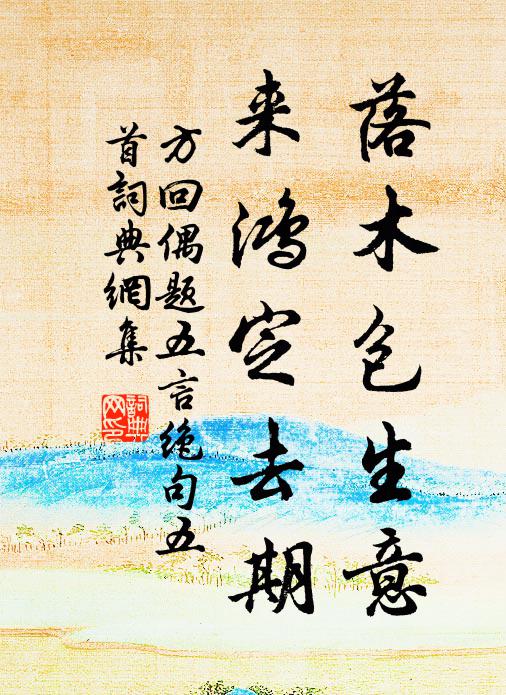 落木包生意
来鸿定去期
方回偶题五言绝句五
首詞典網集
詞典
网印